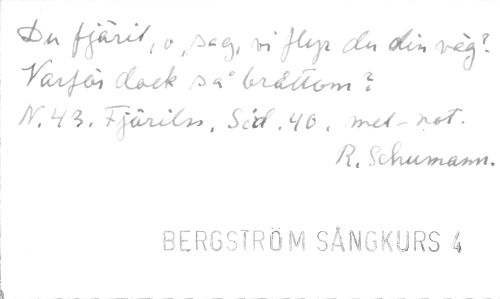 Du fjäril, o, sag, vi flyr du din väg?
Varför dock så bråttom?
N. 43. Fjäriln. Sid. 40. mel-not.
R. Schumann.
BERGSTRÖM SÅNGKURS 4